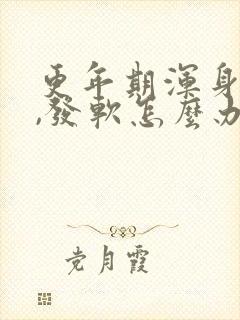 更年期渾身
,發軟怎麼办
党月霞